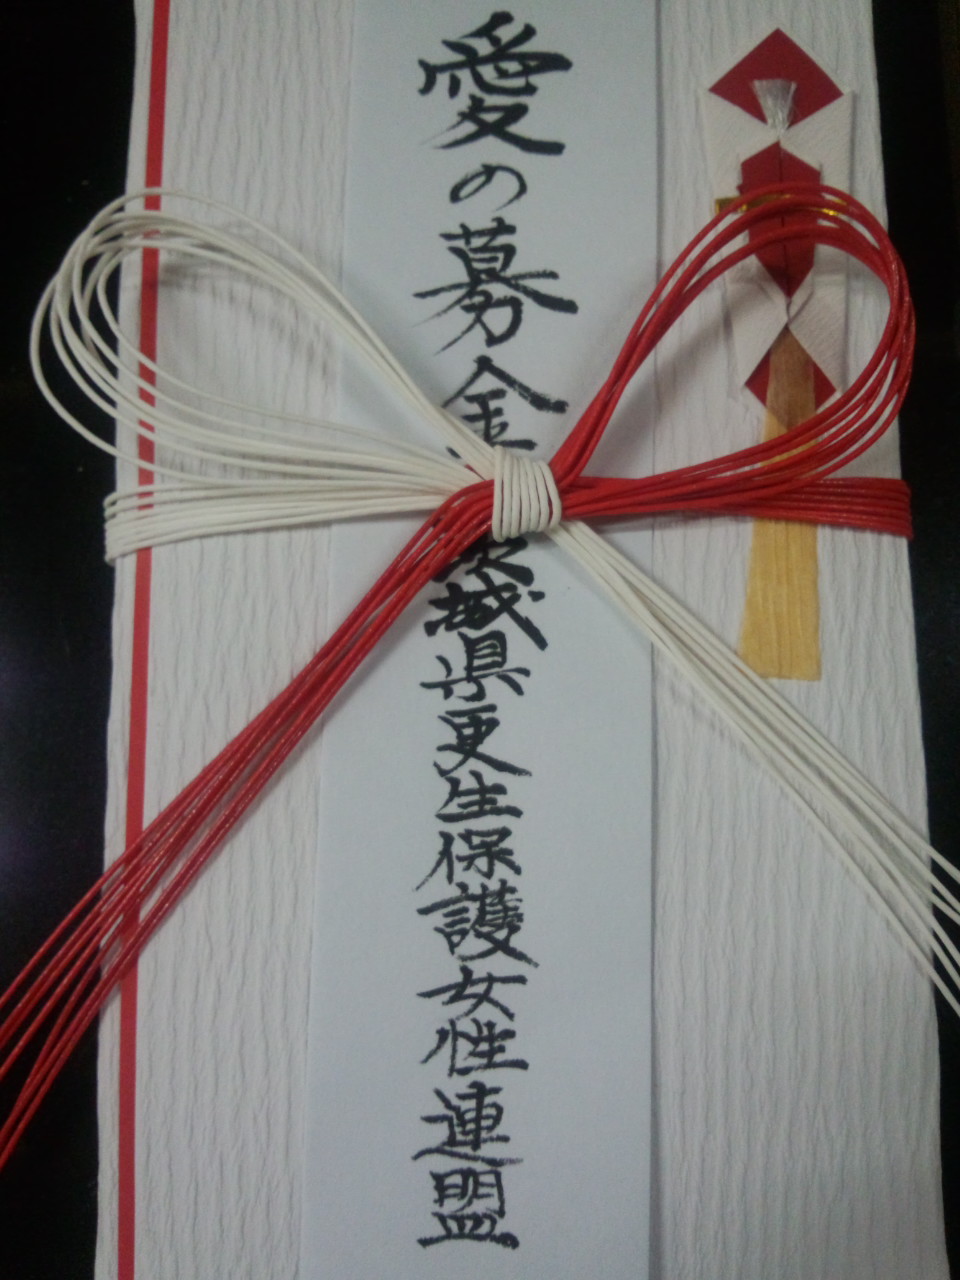 愛の募金
茨城県更生保護女性連盟